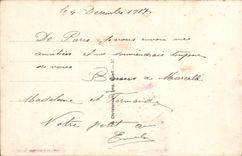 Le 4 Decembre 1917
De Paris je vous envoie mes
amitiées et me souviendrais toujours
de vous
Baisers a Marcelle
Madeleine et Fernand
Votre petit ami
Emile